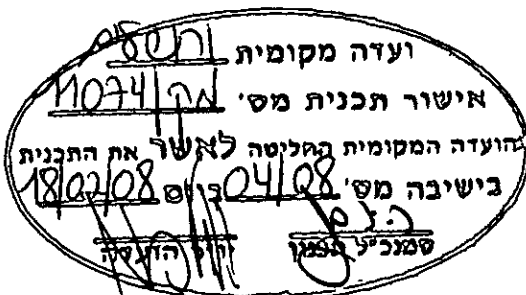 ועדה מקומית
אישור תכנית מס' מק/11074
הועדה המקומית החליטה לאשר את התכנית
בישיבה מס' 04/08 ביום 18/02/08
סמנכ"ל תכנון